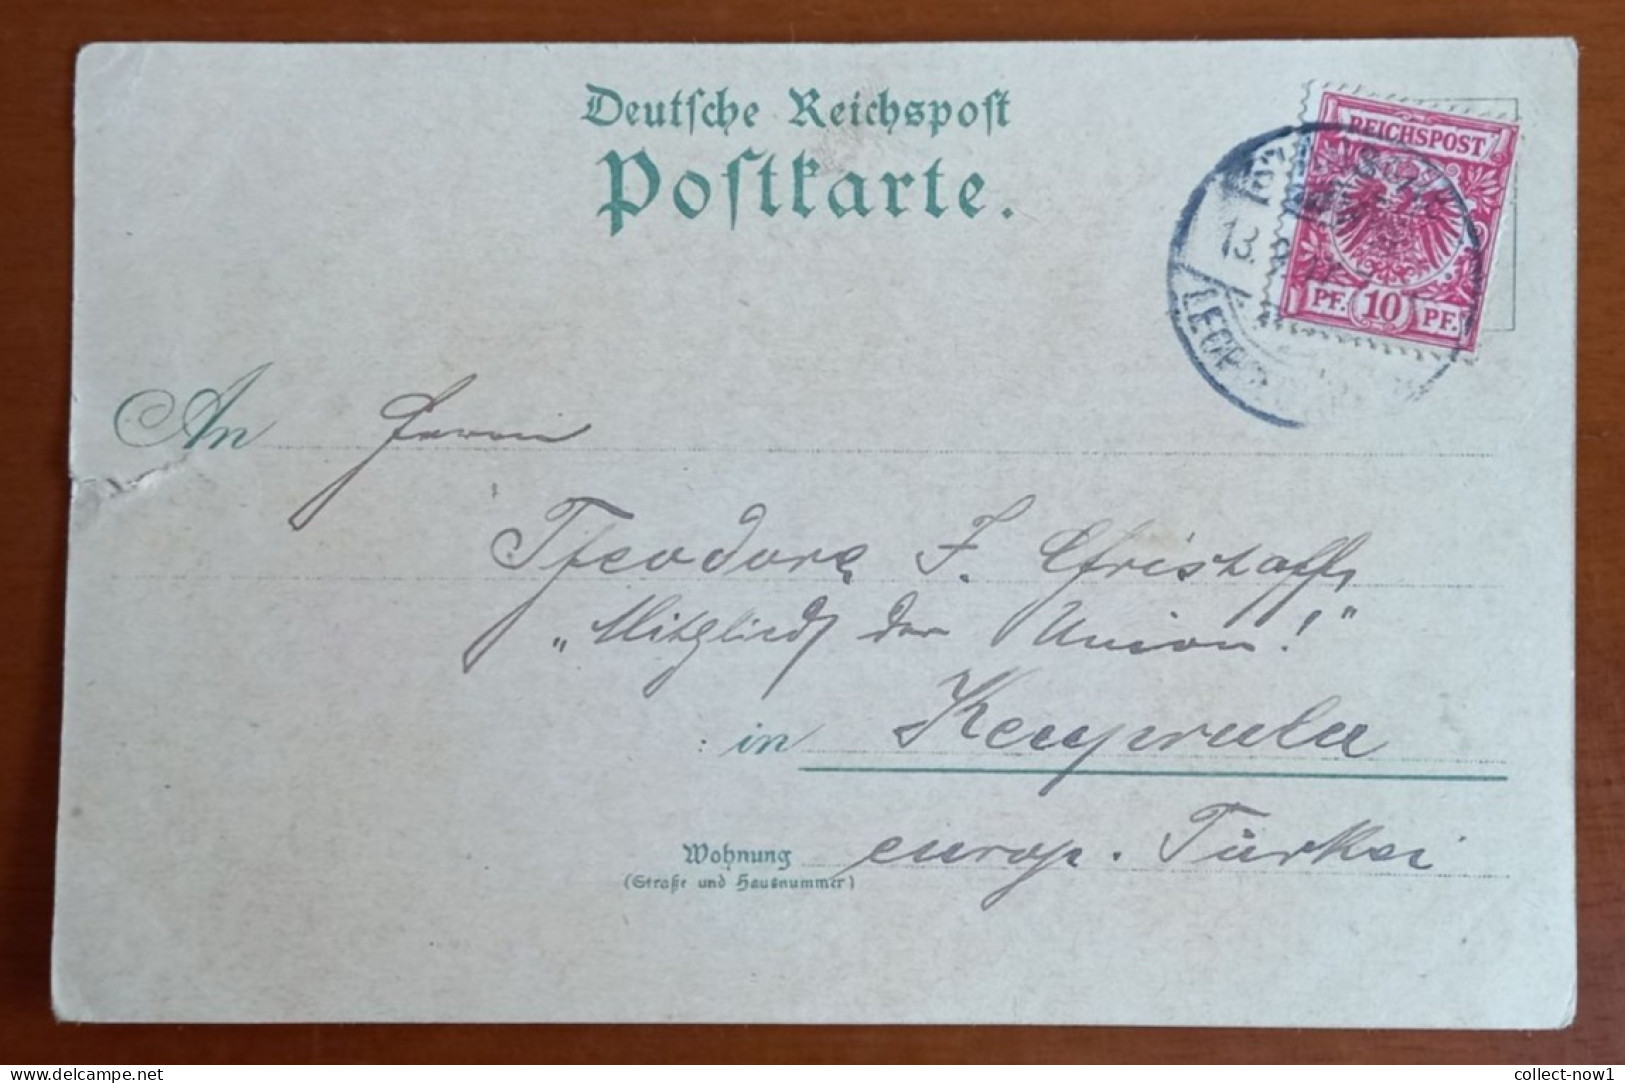 Deutsche Reichspost
Postkarte.
REICHSPOST
13.
PF. 10 PF.
An Herrn
Theodore F. Christoff,
„Mitglied der Union!"
in Keuprulu
europ. Türkei
Wohnung
(Straße und Hausnummer)
collect-now1